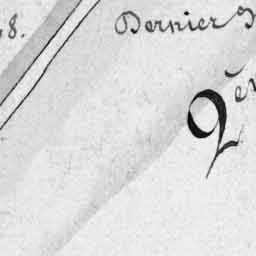 8.
Dernier
2èm